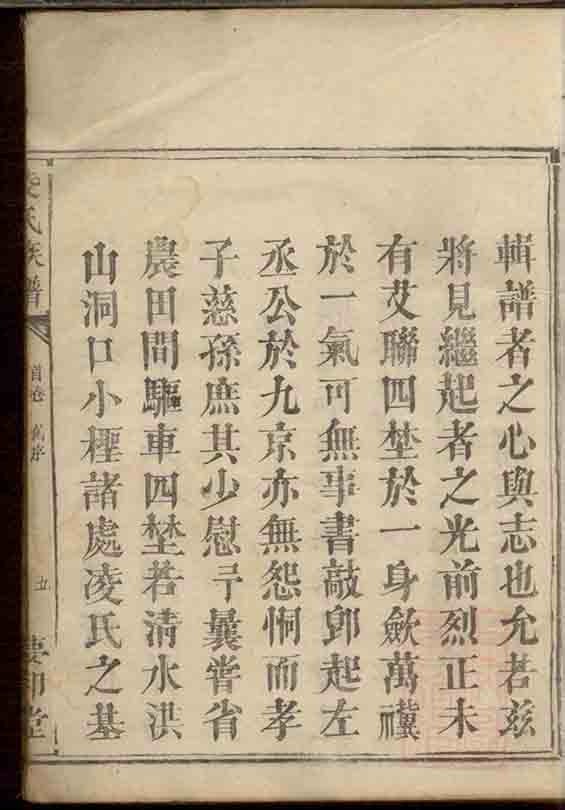 輯譜者之心與志也允若玆
將見繼起者之光前烈正未
有艾聯四埜於一身歛萬禩
於一氣可無事書敲郎起左
丞公於九京亦無怨恫而孝
子慈孫庶其少慰乎曩嘗省
農田間驅車四埜若清水洪
山洞口小樫諸處凌氏之基
氏族譜
首卷 舊序
五
堂